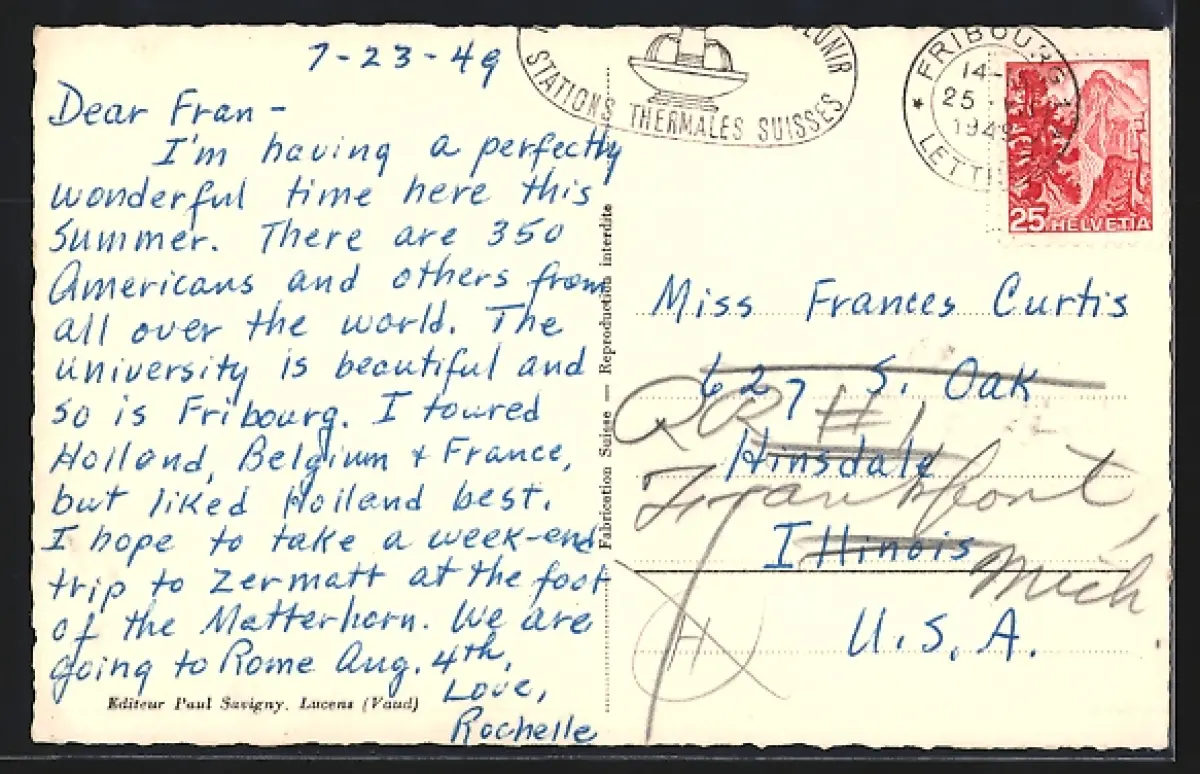 7-23-49
Dear Fran -
I'm having a perfectly
wonderful time here this
Summer. There are 350
Americans and others from
all over the world. The
university is beautiful and
so is Fribourg. I toured
Holland, Belgium + France,
but liked Holland best.
I hope to take a week-end
trip to Zermatt at the foot
of the Matterhorn. We are
going to Rome Aug. 4th.
Love,
Rochelle
Editeur Paul Savigny, Lucens (Vaud)
Fabrication Suisse — Reproduction interdite
STATIONS THERMALES SUISSES
FRIBOURG 1
14-
25
1949
25 HELVETIA
Miss Frances Curtis
627 S. Oak
RR #1
Hinsdale
Frankfort,
Illinois
Mich
U.S.A.
H